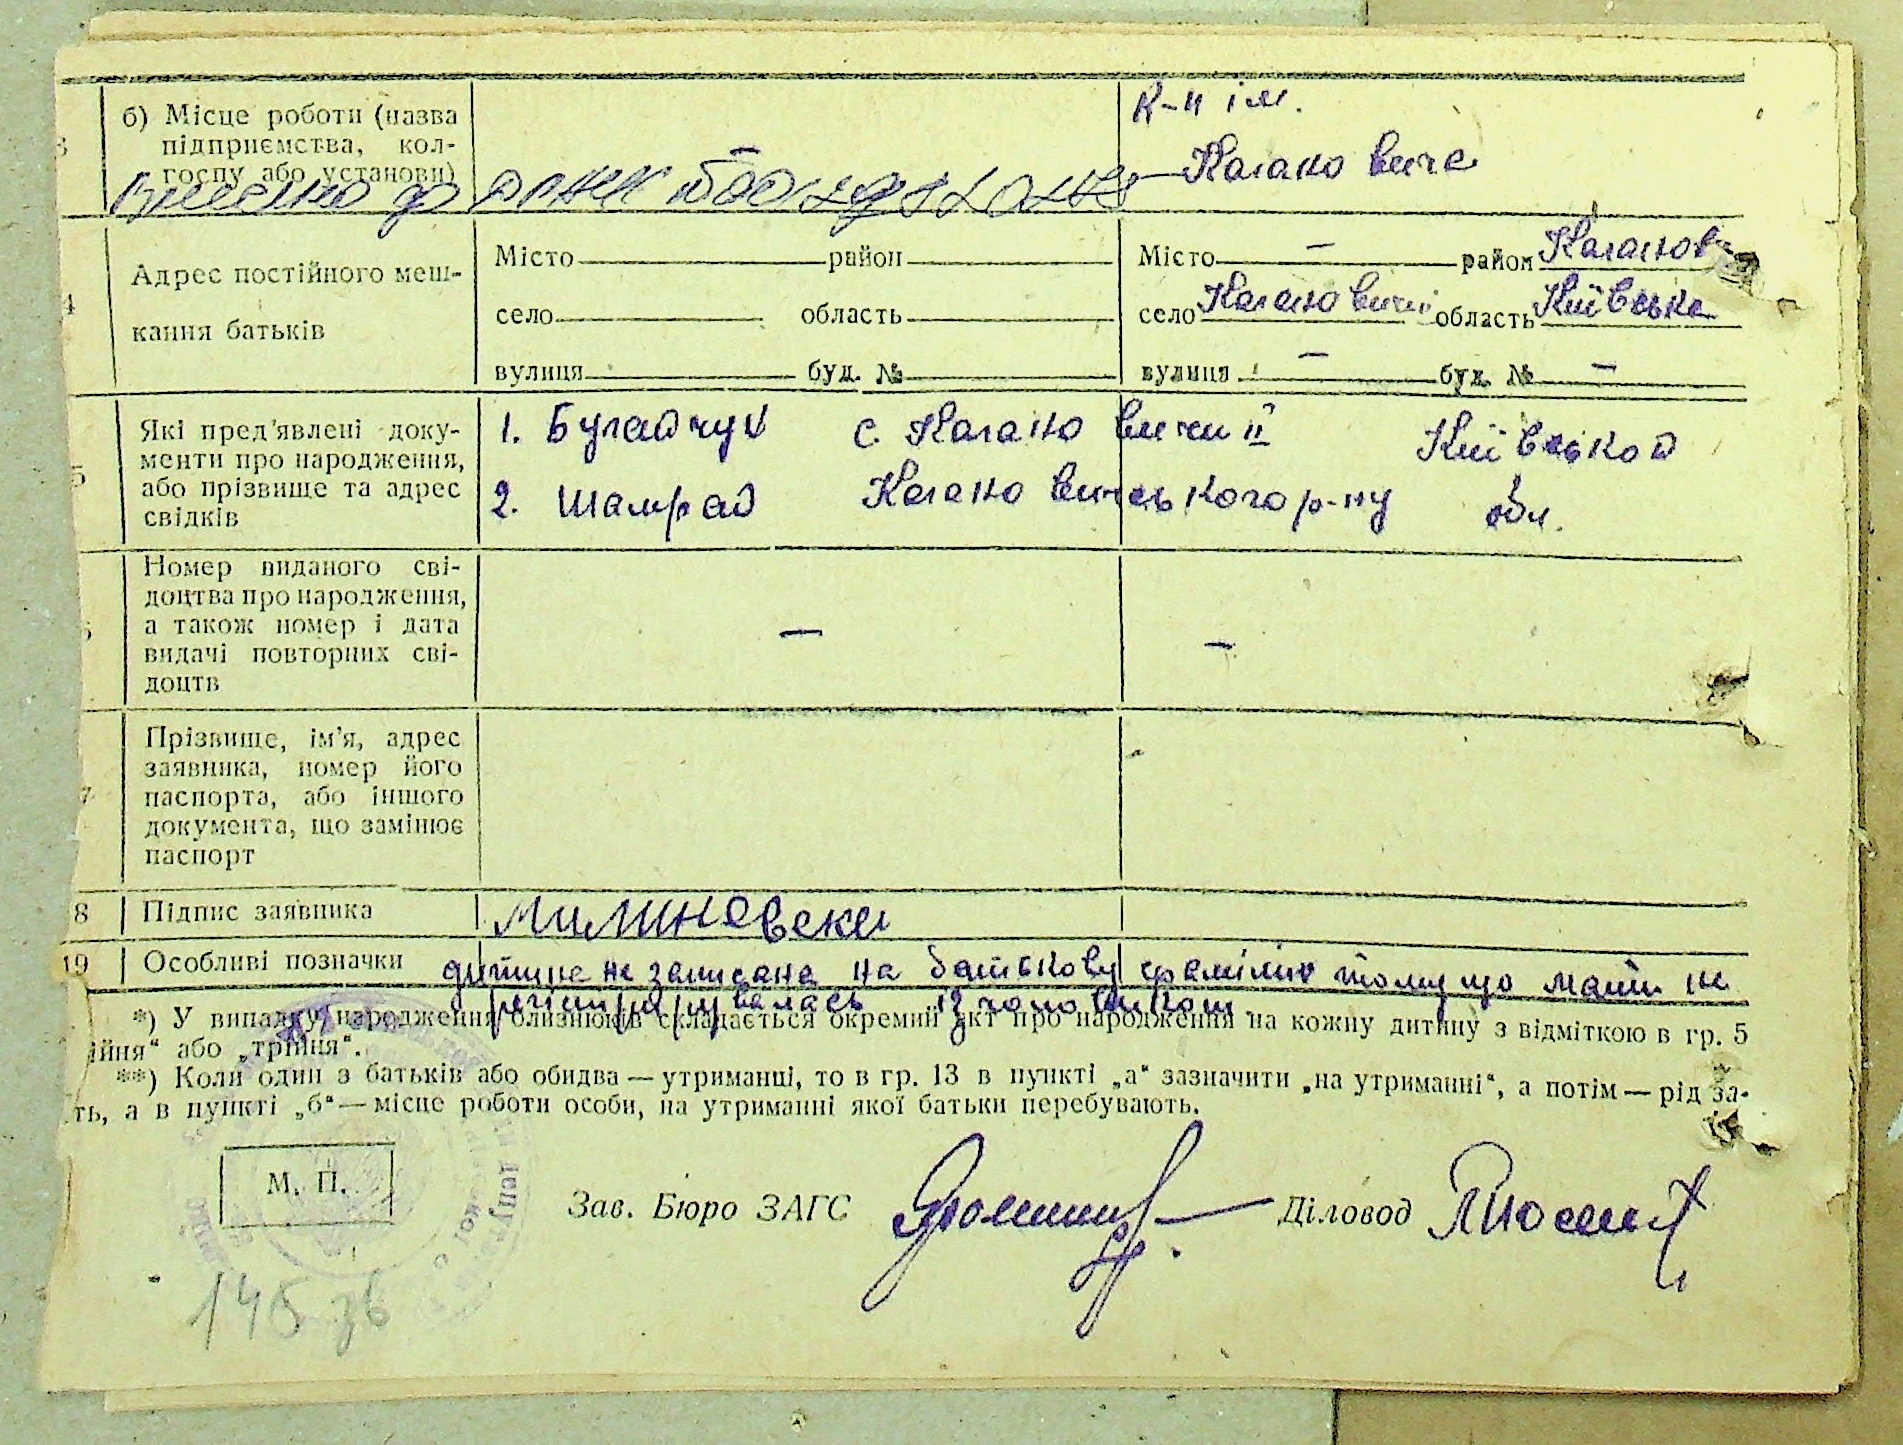 б) Місце роботи (назва
підприємства, кол-
госпу або установи)
К-п ім.
Кагановича
4
Адрес постійного меш-
кання батьків
Місто район
село область
вулиця буд. №
Місто — район Каганов
село Кагановичі область Київська
вулиця — буд. № —
5
Які пред'явлені доку-
менти про народження,
або прізвище та адрес
свідків
1. Бугайчук с. Кагановичи II Київської
2. Шамрай Кагановичського р-ну обл.
Номер виданого сві-
доцтва про народження,
а також номер і дата
видачі повторних сві-
доцтв
—
—
7
Прізвище, ім'я, адрес
заявника, номер його
паспорта, або іншого
документа, що замінює
паспорт
8 Підпис заявника
19 Особливі позначки дитина не записана на батькову фамілію тому що мати не
регіструрувалась із чоловіком.
*) У випадку народження близнюків складається окремий акт про народження на кожну дитину з відміткою в гр. 5
ійня" або „трійня".
**) Коли один з батьків або обидва — утриманці, то в гр. 13 в пункті „а" зазначити „на утриманні", а потім — рід за-
ть, а в пункті „б" — місце роботи особи, на утриманні якої батьки перебувають.
М. П.
Зав. Бюро ЗАГС Діловод
145 зв